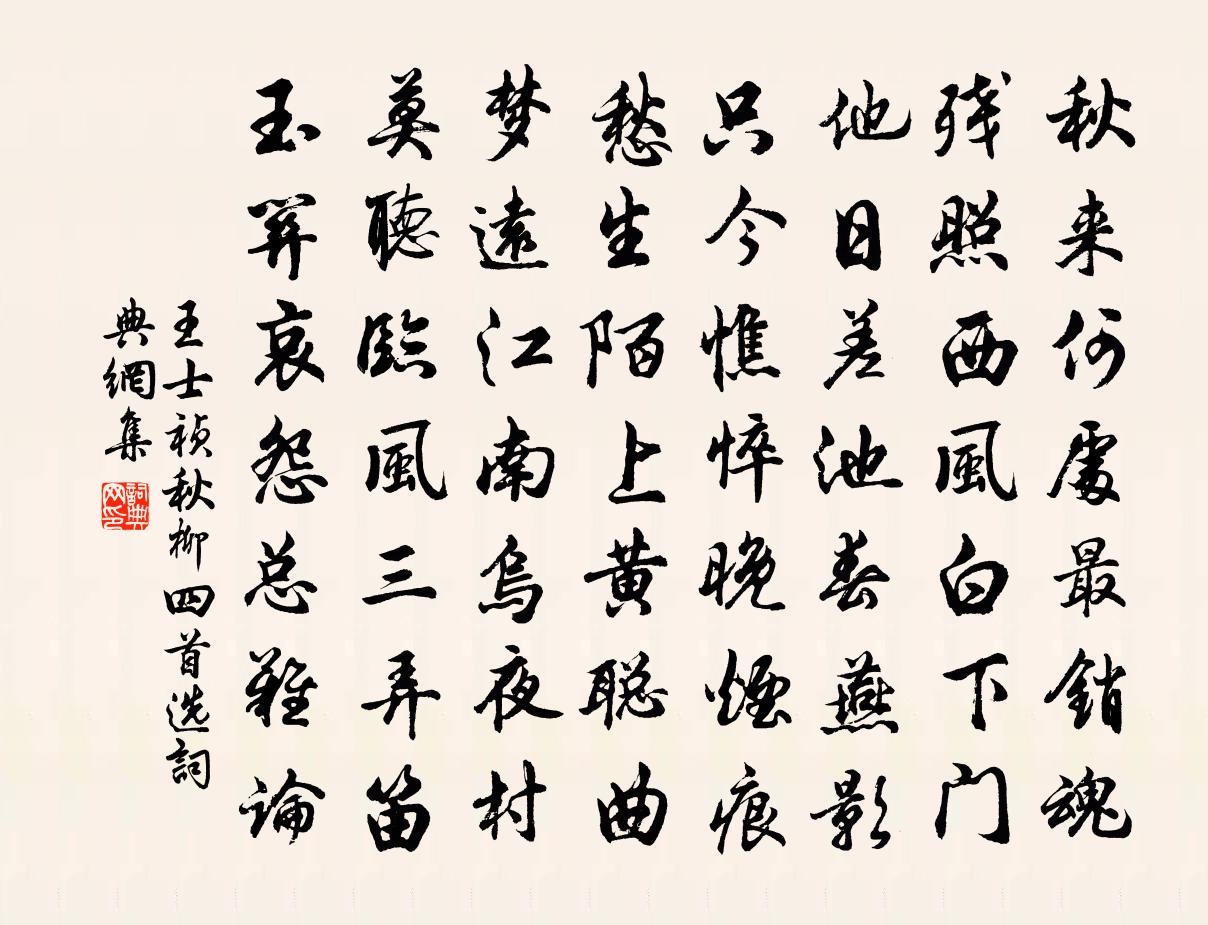 秋来何處最銷魂
残照西風白下门
他日差池春燕影
只今憔悴晚煙痕
愁生陌上黄聪曲
梦遠江南烏夜村
莫聽臨風三弄笛
玉關哀怨总難論
王士祯秋柳四首选詞
典網集
詞典
网印